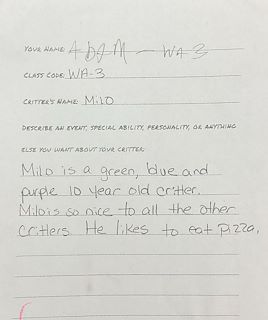 YOUR NAME: WA-3
CLASS CODE: WA-3
CRITTER'S NAME: Milo
DESCRIBE AN EVENT, SPECIAL ABILITY, PERSONALITY, OR ANYTHING
ELSE YOU WANT ABOUT YOUR CRITTER:
Milo is a green, blue and
purple 10 year old critter.
Milo is so nice to all the other
critters He likes to eat pizza.